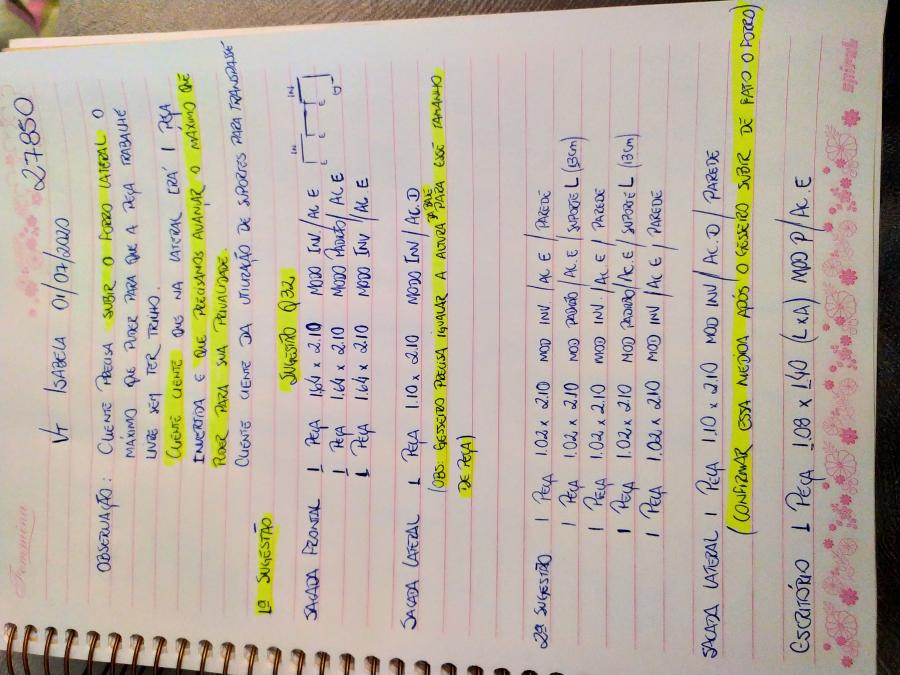 Feminina
27850
VT ISABELA 01/07/2020
OBSERVAÇÃO: CLIENTE PRECISA SUBIR O FORRO LATERAL O
MÁXIMO QUE PUDER PARA QUE A PEÇA TRABALHE
LIVRE SEM TER TRILHO.
CLIENTE CIENTE QUE NA LATERAL ERÁ 1 PEÇA
INVERTIDA E QUE PRECISAMOS AVANÇAR O MÁXIMO QUE
PUDER PARA SUA PRIVACIDADE.
CLIENTE CIENTE DA UTILIZAÇÃO DE SUPORTES PARA TRANSPASSE
1ª SUGESTÃO SUGESTÃO Q32
INV INV
E E D
SACADA FRONTAL 1 PEÇA 1.64 x 2.10 MODO INV / AC E
1 PEÇA 1.64 x 2.10 MODO PADRÃO / AC E
1 PEÇA 1.64 x 2.10 MODO INV / AC E
SACADA LATERAL 1 PEÇA 1.10 x 2.10 MODO INV / AC. D
(OBS. GESSEIRO PRECISA IGUALAR A ALTURA PARA ESSE TAMANHO
DE PEÇA)
2ª SUGESTÃO 1 PEÇA 1.02 x 2.10 MOD INV. / AC E / PAREDE
1 PEÇA 1.02 x 2.10 MOD PADRÃO / AC. E / SUPORTE L (13cm)
1 PEÇA 1.02 x 2.10 MOD INV. / AC E / PAREDE
1 PEÇA 1.02 x 2.10 MOD PADRÃO / AC. E / SUPORTE L (13cm)
1 PEÇA 1.02 x 2.10 MOD INV / AC E / PAREDE
SACADA LATERAL 1 PEÇA 1.10 x 2.10 MOD INV / AC. D / PAREDE
(CONFIRMAR ESSA MEDIDA APÓS O GESSEIRO SUBIR DE FATO O FORRO)
ESCRITÓRIO 1 PEÇA 1.08 x 1.40 (L x A) MOD P / AC. E
spiral